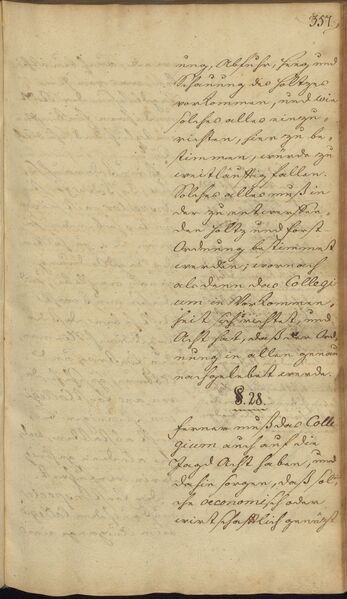 357.
ung, Abfuhr, Heeg und
Schonung des Holtzes
vorkommen, und wie
solches alles einzu-
richten, hier zu be-
stimmen, würde zu
weitläuftig fallen.
Solches alles muß in
der zu entwerffen-
den Holtz und Forst
Ordnung bestimmet
werden; wornach
als denn das Collegi
um in Vorkommen-
heit sich richtet, und
Acht hat, daß der Ord-
nung in allen genau
nachgelebet werde.
§. 28.
Ferner muß das Colle
gium auch auf die
Jagd Acht haben, und
dahin sorgen, daß sol-
che oeconomisch oder
wirtschafftlich genützt